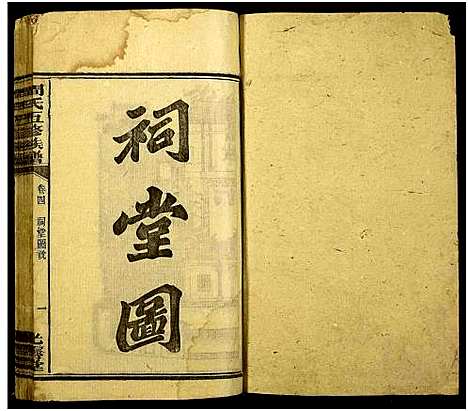 祠堂圖
周氏五修族譜
卷四 祠堂圖說
一